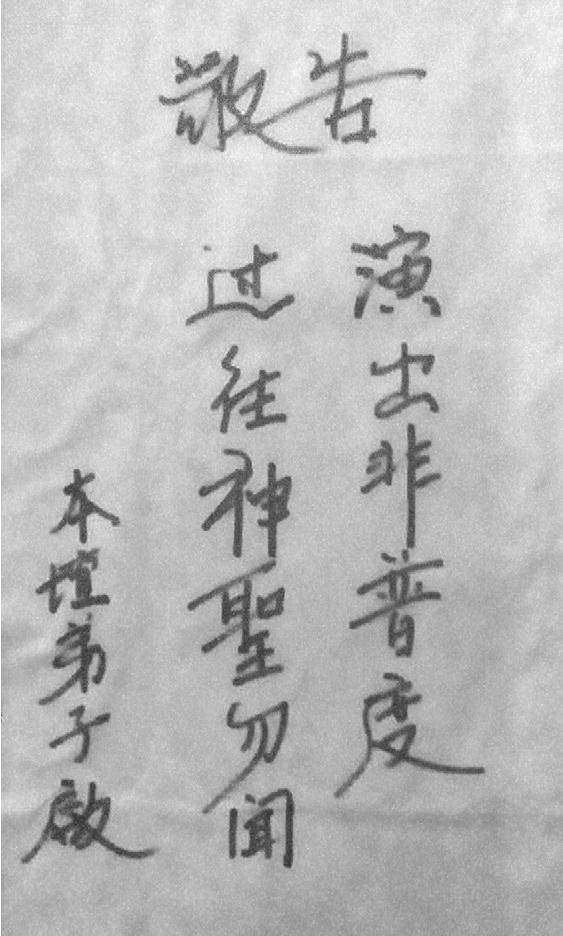 敬告
演出非普度
过往神聖勿闻
本壇弟子啟